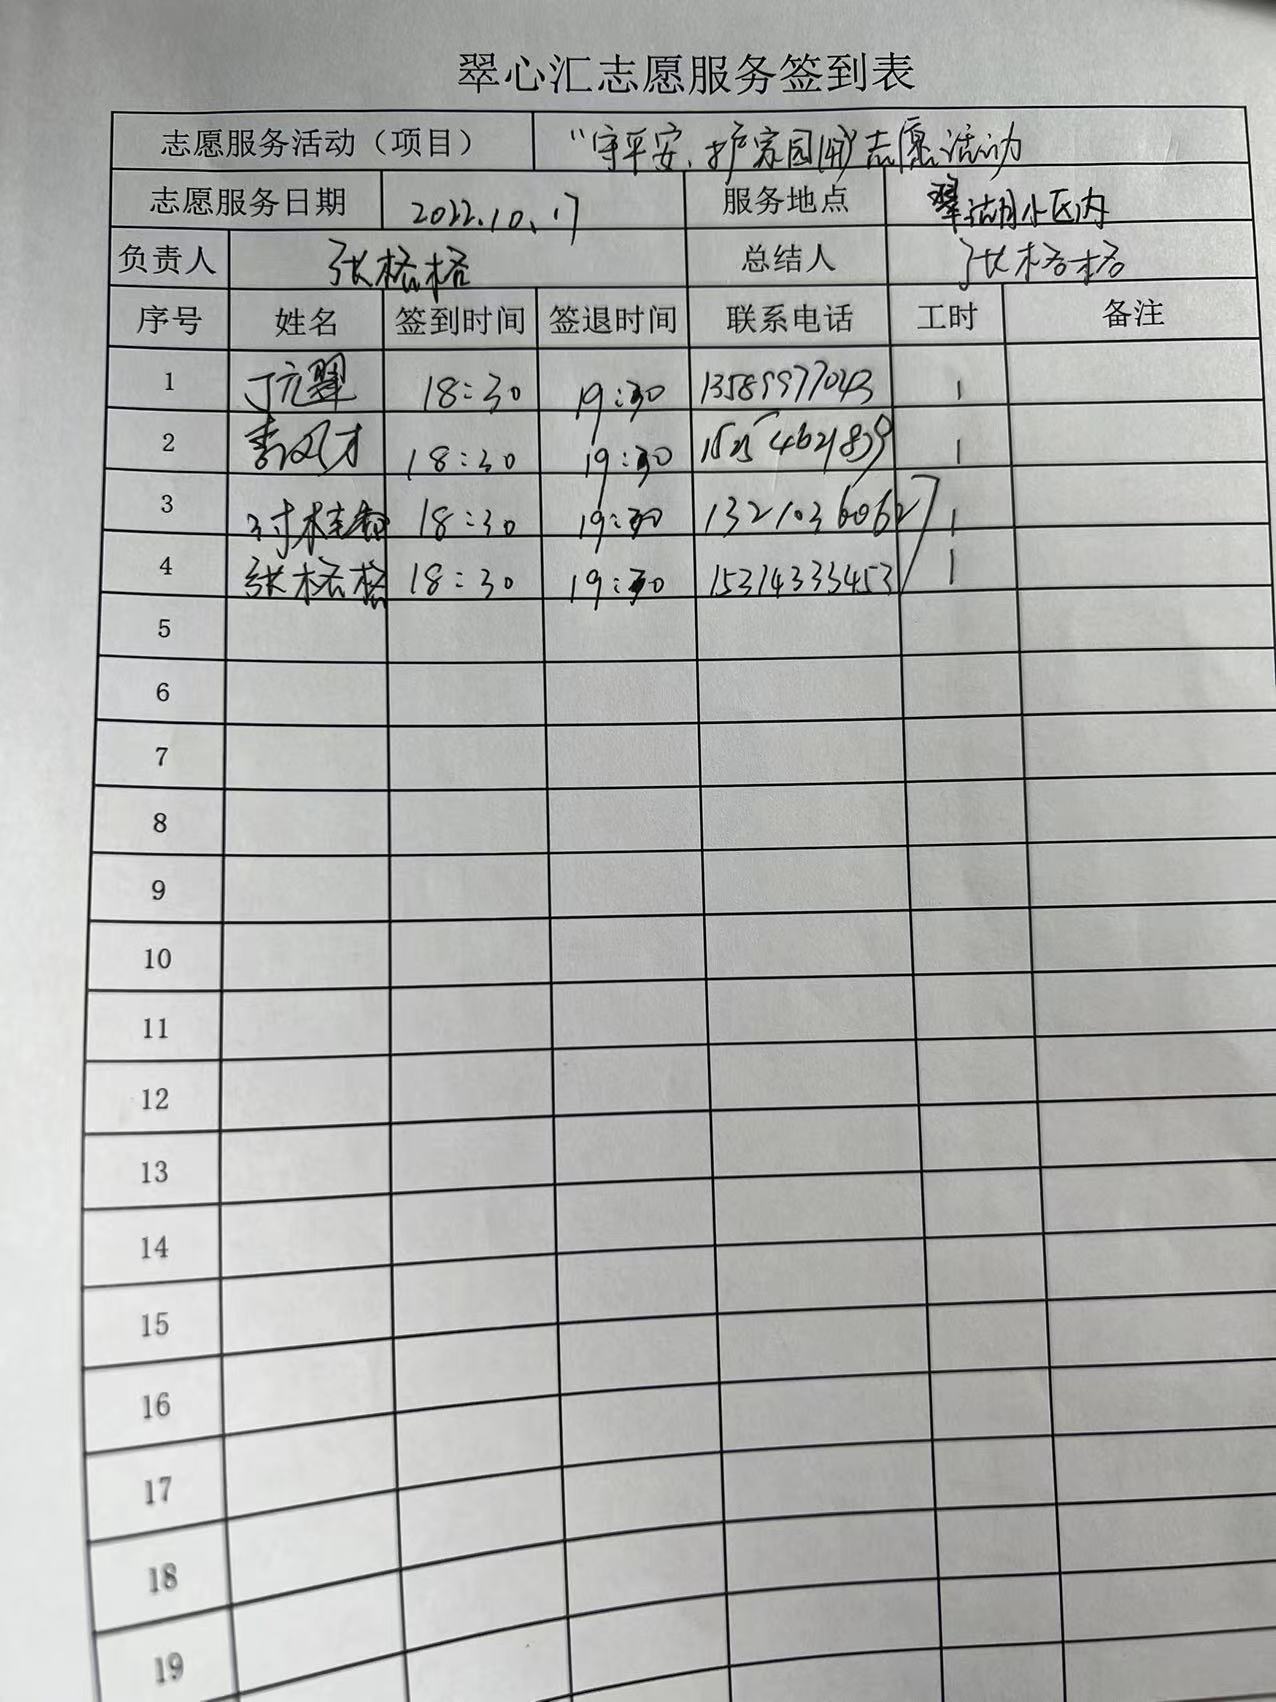 翠心汇志愿服务签到表
志愿服务活动（项目） “守平安、护家园”志愿活动
志愿服务日期 2022.10.17 服务地点 翠湖小区内
负责人 张格格 总结人 张格格
序号 姓名 签到时间 签退时间 联系电话 工时 备注
1 丁元翠 18:30 19:30 13589977043 1
2 李风才 18:30 19:30 15254621839 1
3 18:30 19:30 13210360627 1
4 张格格 18:30 19:30 15314333453 1
5
6
7
8
9
10
11
12
13
14
15
16
17
18
19